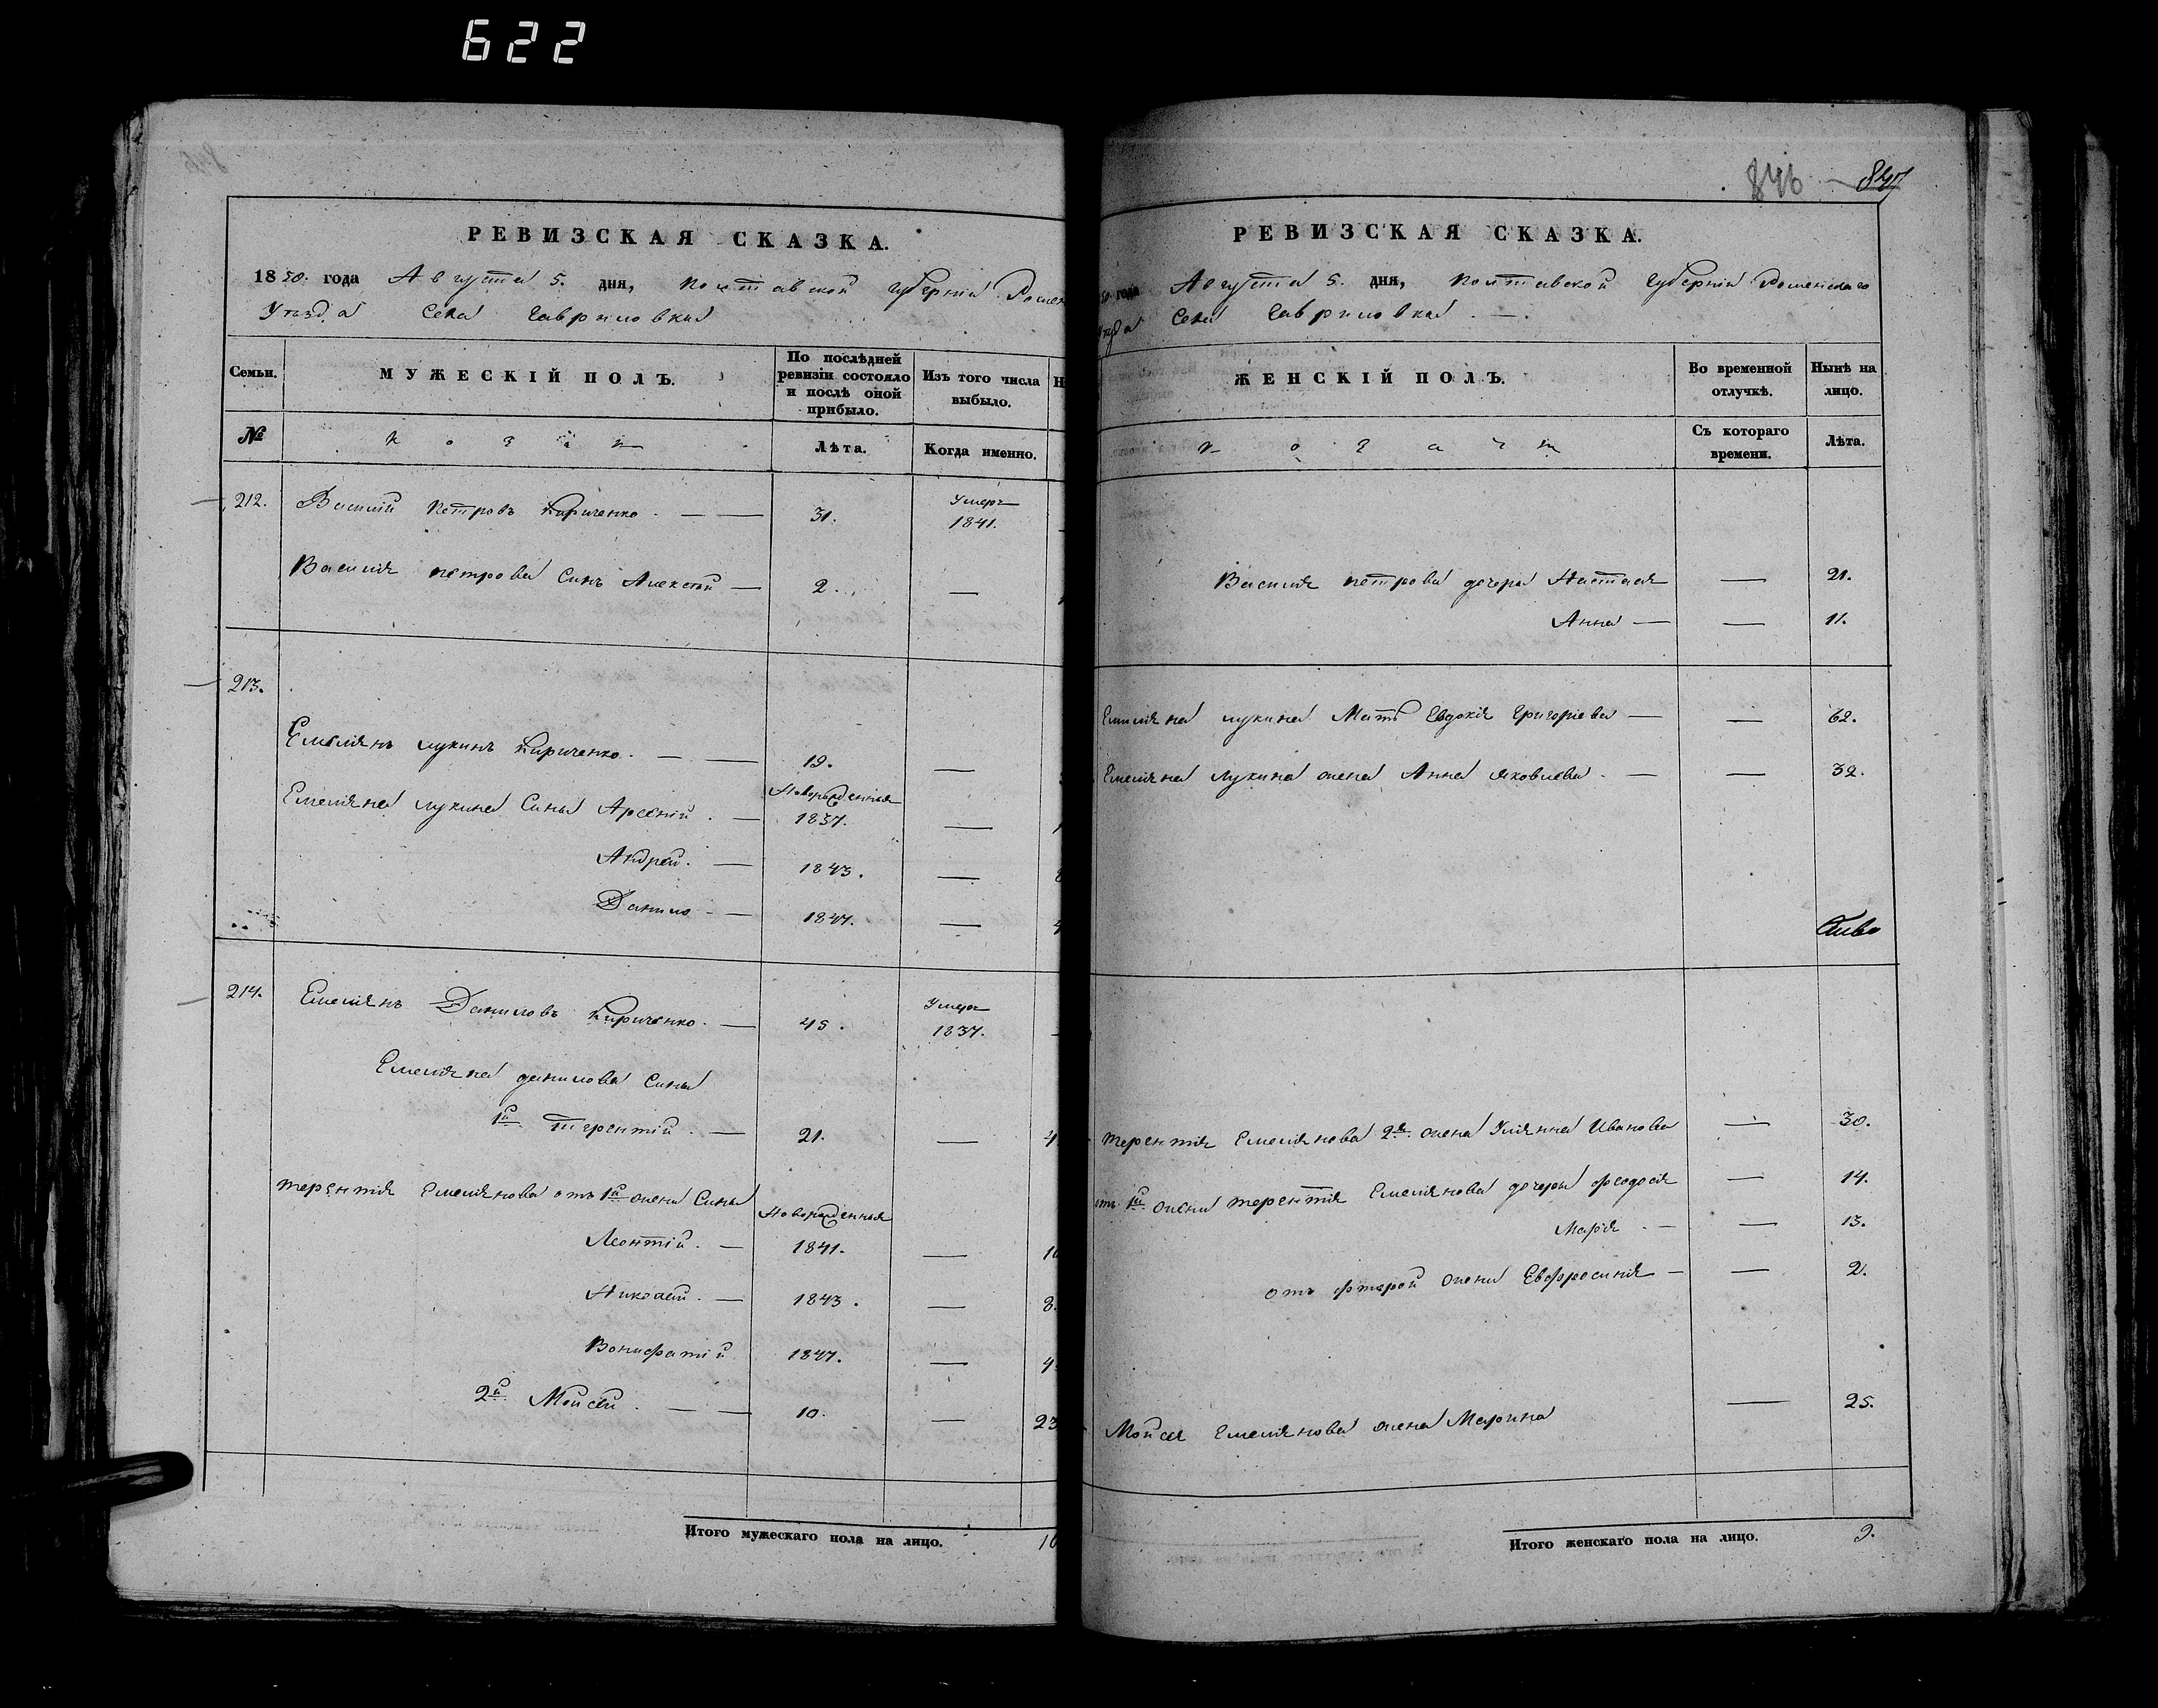 622
РЕВИЗСКАЯ СКАЗКА.
1850. года Августа 5. дня, Полтавской губерніи Ромен
Уѣзда Села Гавриловки
Семьи.
МУЖЕСКІЙ ПОЛЪ.
По послѣдней ревизіи состояло и послѣ оной прибыло.
Изъ того числа выбыло.
Н
№
Лѣта.
Когда именно.
212. Василій Петровъ Кириченко. — — 31. Умеръ 1841.
Василія петрова Сынъ Алексѣй — 2. —
213.
Емелянъ лукинъ Кириченко. — — 19. —
Емеляна лукина Сыны Арсеній. — Новорожденныя 1837. —
Андрей. — 1843. —
Данило — 1847. —
214. Емелянъ Даниловъ Кириченко. — 45. Умеръ 1837.
Емеляна данилова Сыны
1й Терентій. — 21. — 4
терентія Емелянова отъ 1й жены Сыны Новорожденныя
Леонтій. — 1841. — 10
Николай. — 1843. — 8.
Вонифатій 1847. — 4
2й Мойсей. — — 10. — 23
Итого мужескаго пола на лицо. 10
846 847
РЕВИЗСКАЯ СКАЗКА.
50. года Августа 5. дня, Полтавской Губерніи Роменскаго
Уѣзда Села Гавриловки. —.
ЖЕНСКІЙ ПОЛЪ.
Во временной отлучкѣ.
Нынѣ на лицо.
Съ котораго времени.
Лѣта.
Василія петрова дочери Настасія — 21.
Анна — — 11.
Емеляна лукина Мать Евдокія Григоріева — — 62.
Емеляна Лукина жена Анна яковлева. — — 32.
терентія Емелянова 2я жена Уляна Иванова — 30.
отъ 1й жены терентія Емелянова дочери феодосія — 14.
Марія. — — 13.
отъ фторой жены Евфросинія — — 2.
Мойсея Емелянова жена Марина — 25.
Итого женскаго пола на лицо. 9.